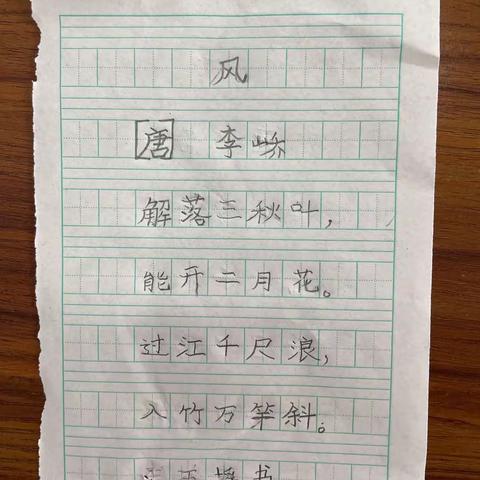 风
[唐] 李峤
解落三秋叶，
能开二月花。
过江千尺浪，
入竹万竿斜。
书